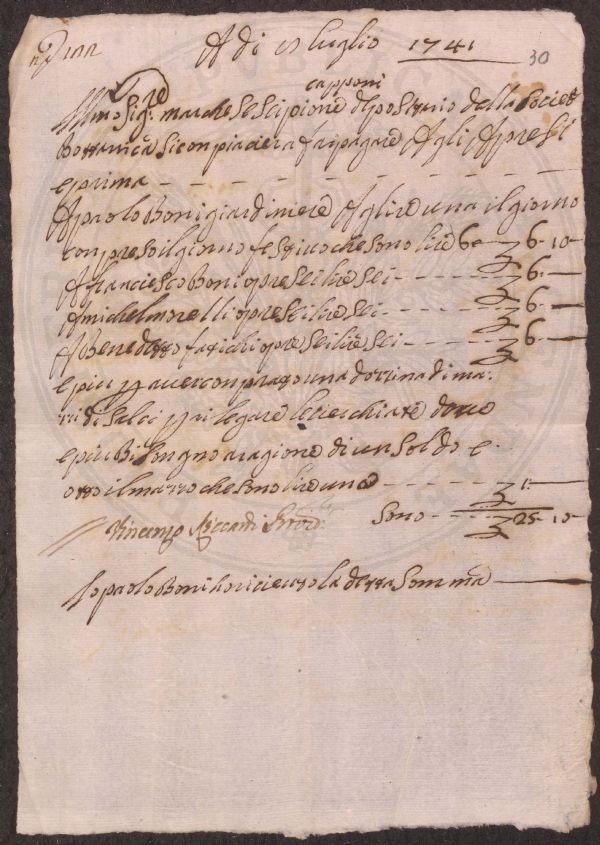 A di luglio 1741
30
capponi
Illmo Sigre: marchese Scipione depositario della Società
bottanica si conpiacierà far pagare Agli Apresti
e prima
A paolo Boni giardiniere A lire una il giorno
conpreso il giorno festivo che sono lire 6 6 10
A franciesco Boni opre sei lire sei 6
A michel opre sei lire sei 6
A Benedetto opre sei lire sei 6
e piu p aver conprato una dozzina di ma:
zzi di Salci p rilegare le dove
e piu bisongno a ragione di un soldo e
otto il mazzo che sono lire una 1
Vincenzo Riccardi Prov:
Sono 25 10
Io paolo Boni ho ricieuto la detta somma